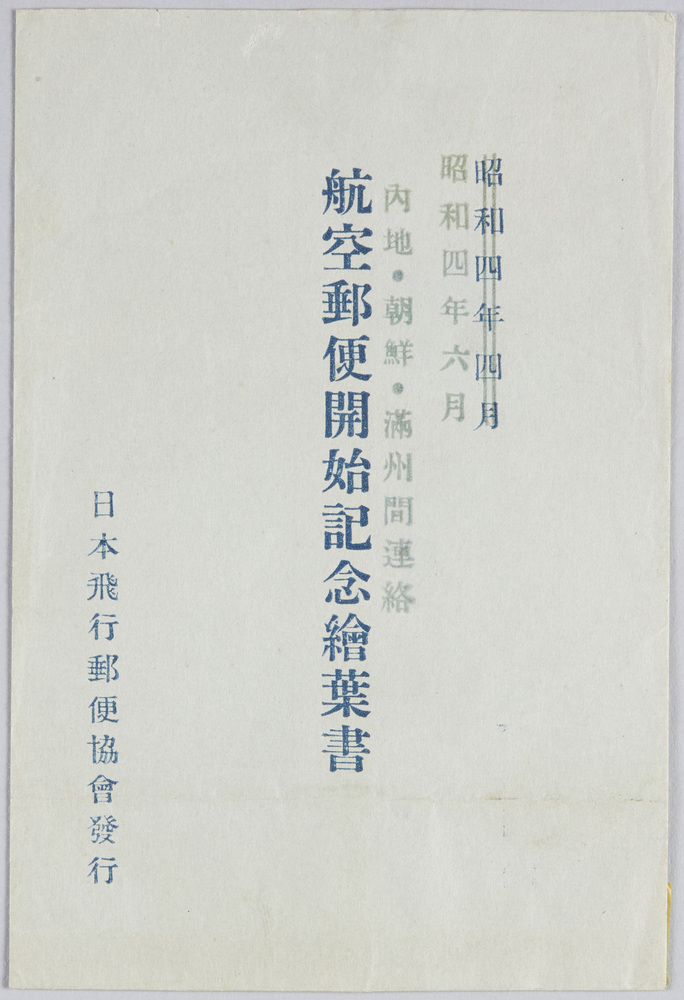 昭和四年四月
昭和四年六月
內地・朝鮮・滿州間連絡
航空郵便開始記念繪葉書
日本飛行郵便協會發行